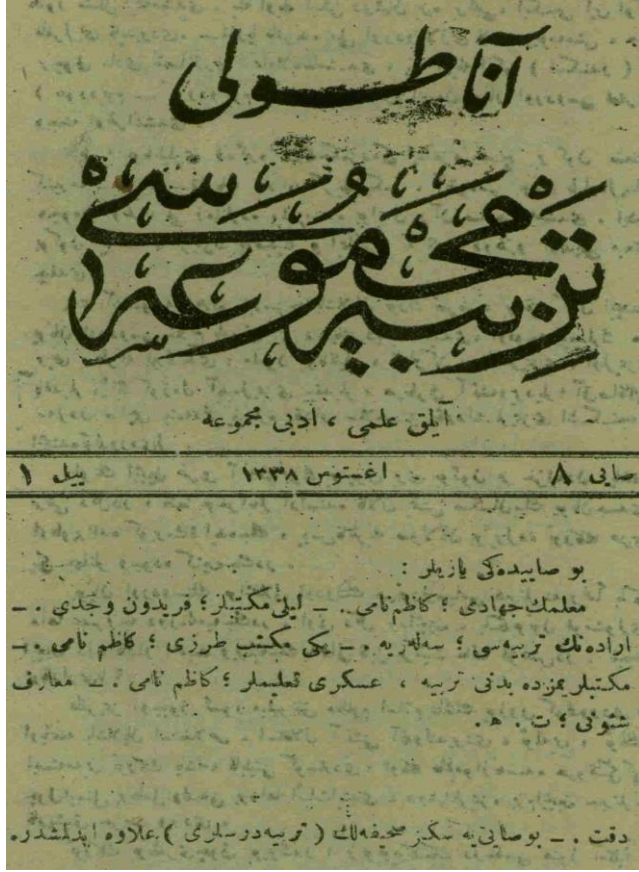 آناطولی
تربیه مجموعه‌سی
آیلق علمی ، ادبی مجموعه
صایی ٨ اغستوس ١٣٣٨ ییل ١
بو صاییده‌کی یازیلر :
معلمك جهادی ؛ کاظم نامی . — لیلی مکتبلر ؛ فریدون وجدی . —
اراده‌نك تربیه‌سی ؛ سه‌له‌ریه . — یکی مکتب طرزی ؛ کاظم نامی . —
مکتبلریمزده بدنی تربیه ، عسکری تعلیملر ؛ کاظم نامی . — معارف
شئونی ؛ ت . ه .
دقت . — بو صایی‌یه سکز صحیفه‌لك ( تربیه درسلری ) علاوه ایدلمشدر .